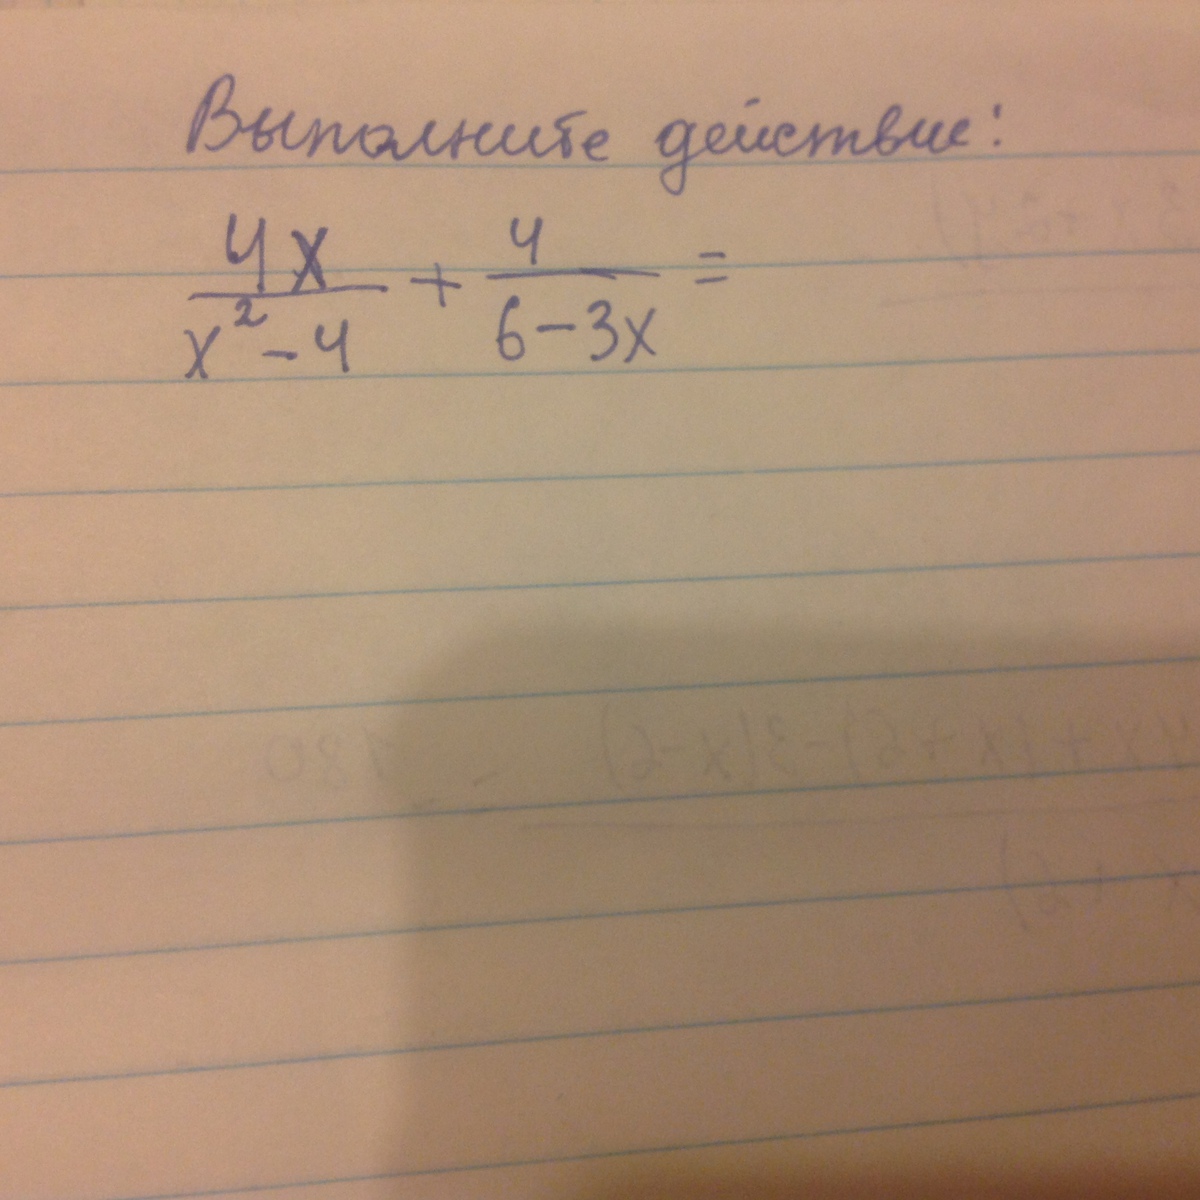 Выполните действие:
4x/(x²-4) + 4/(6-3x) =